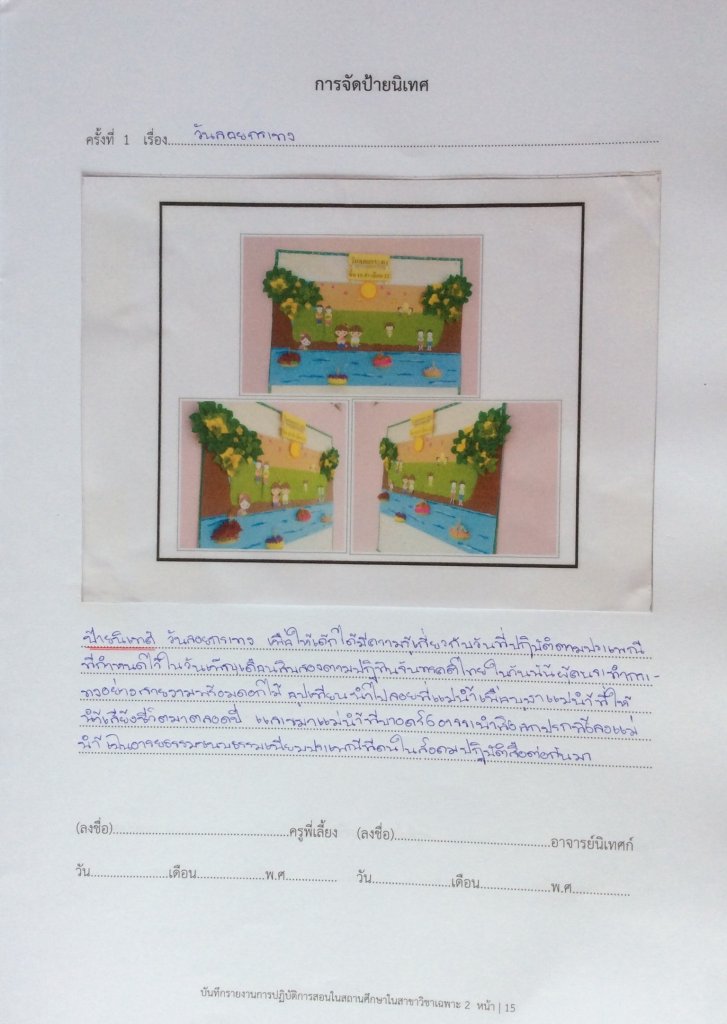 การจัดป้ายนิเทศ
ครั้งที่ 1 เรื่อง วันลอยกระทง
วันลอยกระทง
ป้ายนิเทศ วันลอยกระทง เพื่อให้เด็กได้มีความรู้เกี่ยวกับวันที่ปฏิบัติตามประเพณี
ที่กำหนดไว้ในวันเพ็ญเดือนสิบสองตามปฏิทินจันทรคติไทย ในวันนั้น
อย่างสวยงามพร้อมดอกไม้ ธูปเทียนนำไปลอยที่แม่น้ำเพื่อบูชาแม่น้ำที่ให้
ชีวิตมาตลอดปี และขอขมาแม่น้ำที่
น้ำ ประเพณีที่คนใน ปฏิบัติสืบต่อกันมา
(ลงชื่อ) ครูพี่เลี้ยง (ลงชื่อ) อาจารย์นิเทศก์
วัน เดือน พ.ศ วัน เดือน พ.ศ
บันทึกรายงานการปฏิบัติการสอนในสถานศึกษาในสาขาวิชาเฉพาะ 2 หน้า | 15